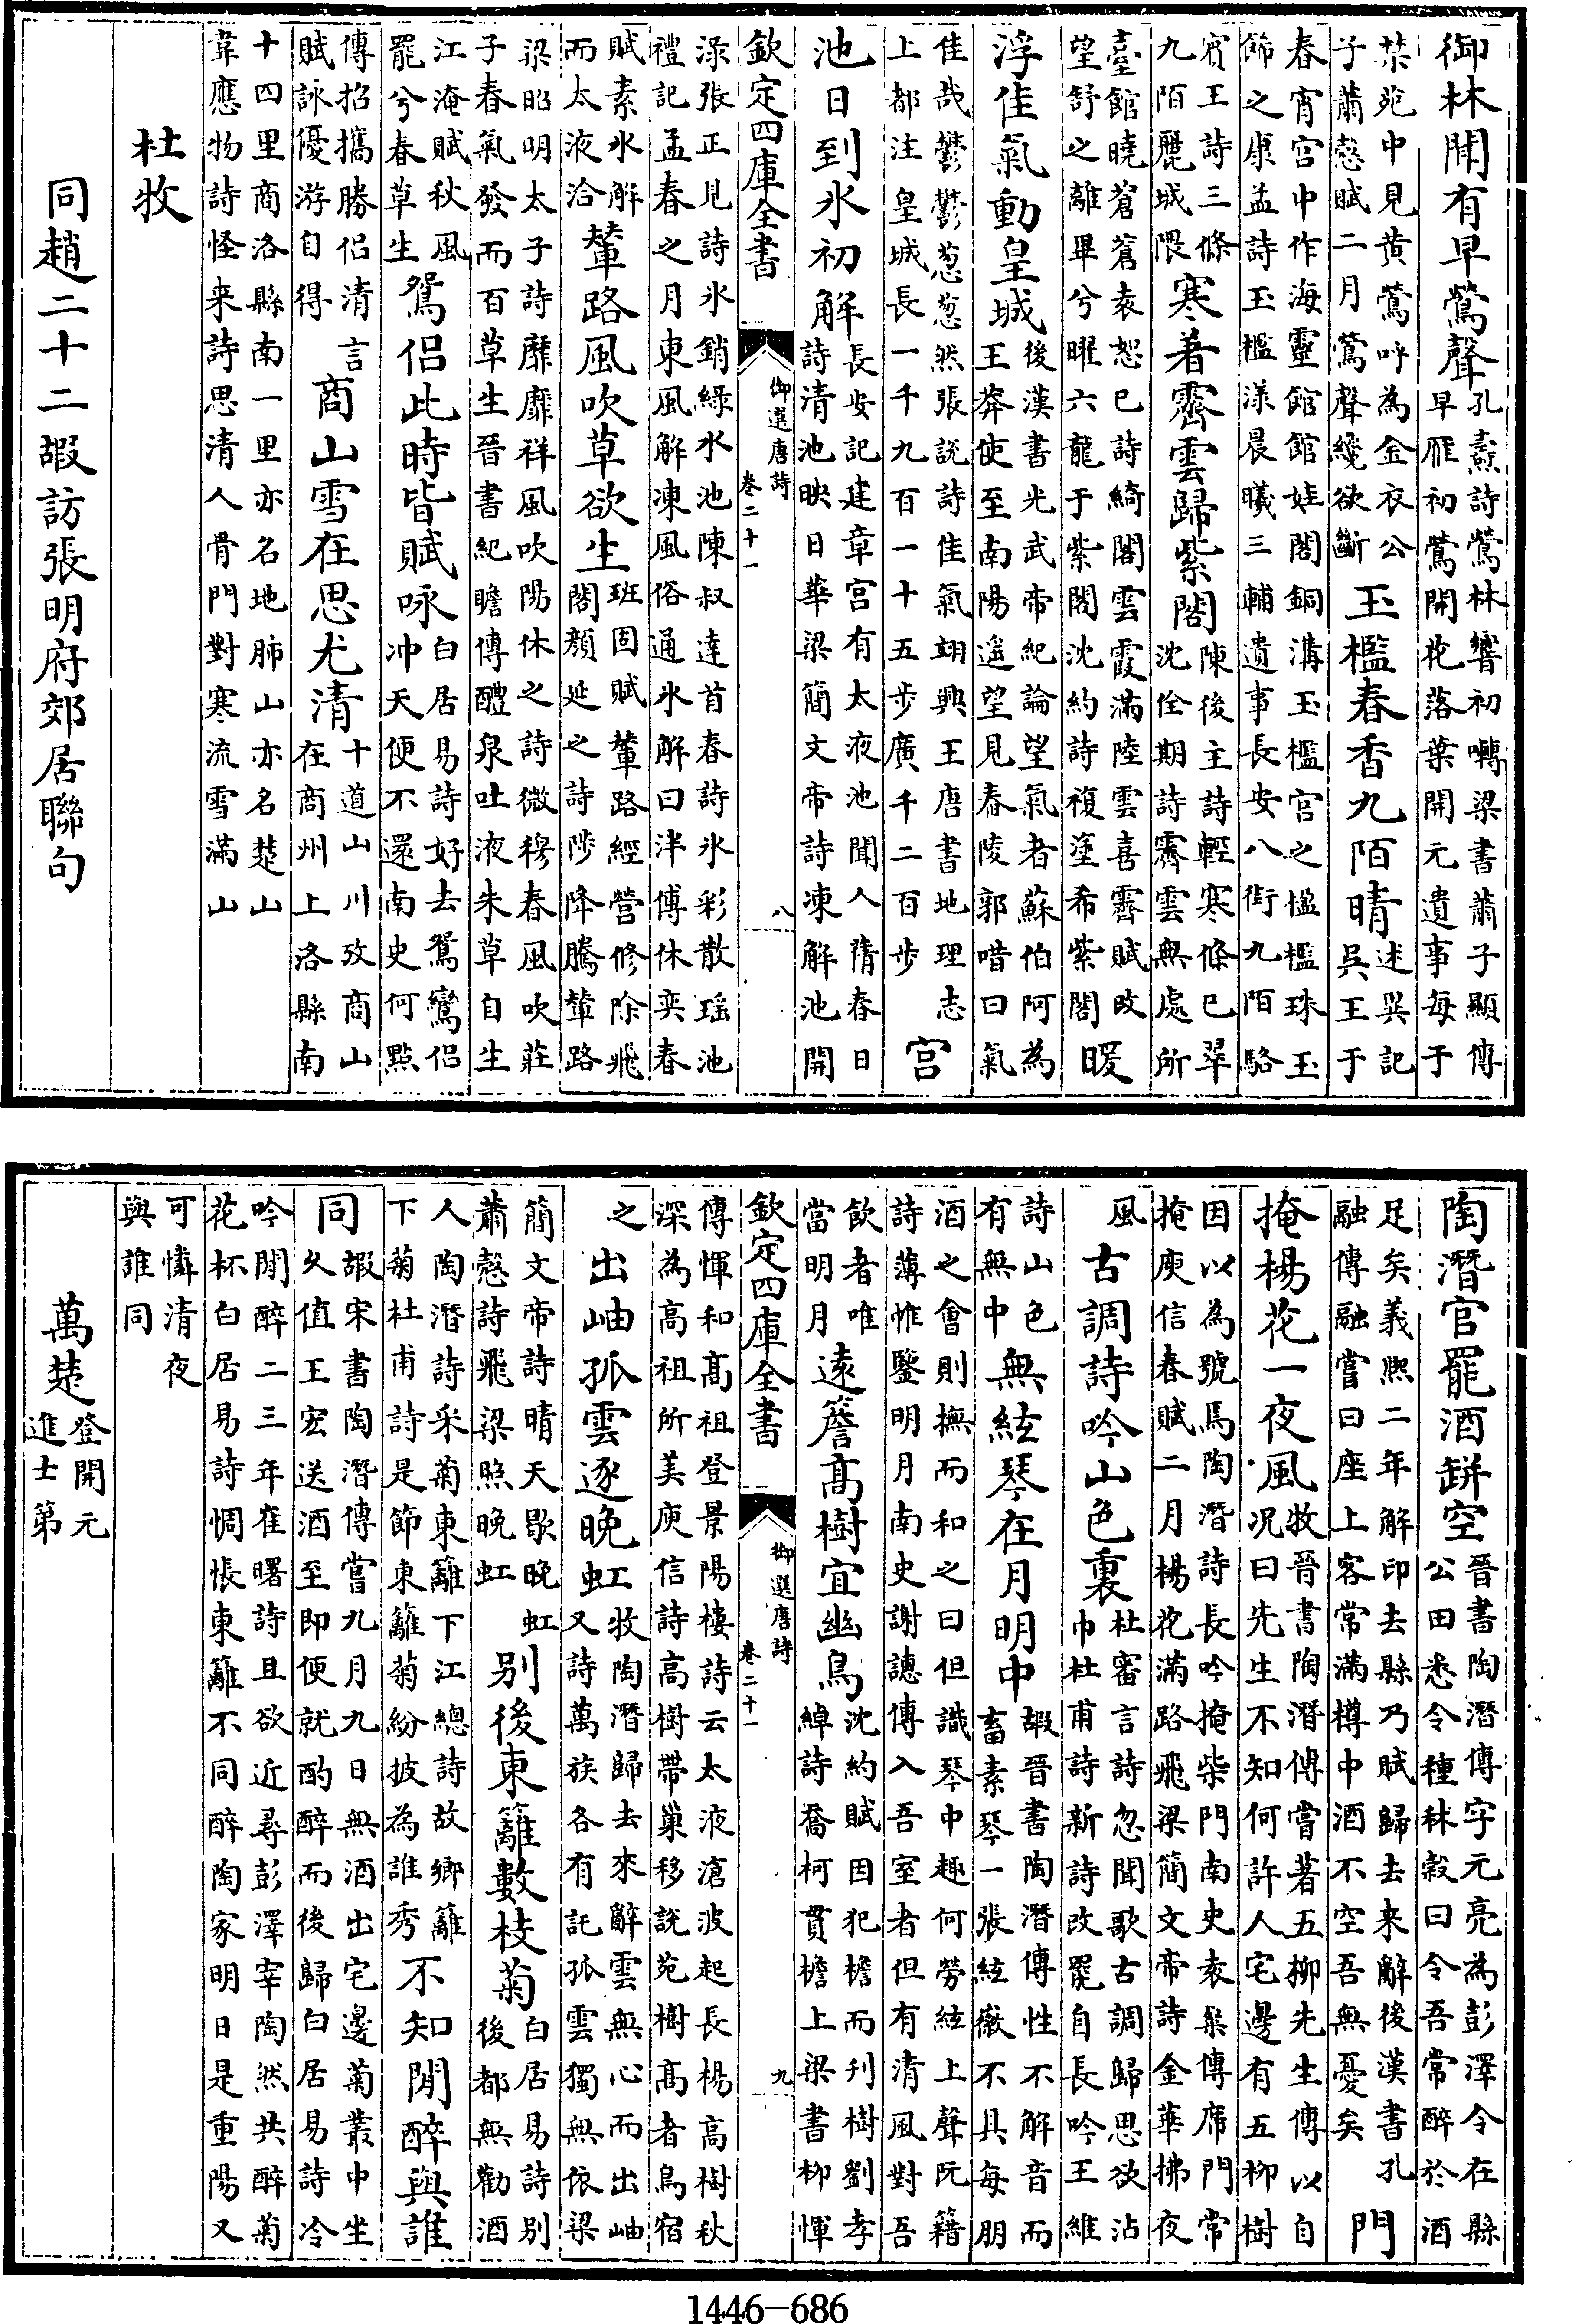 御林聞有早鶯聲孔燾詩鶯林響初囀梁書蕭子顯傳早雁初鶯開花落葉開元遺事每于
禁苑中見黃鶯呼為金衣公子蕭愨賦二月鶯聲纔欲斷玉檻春香九陌晴述異記吳王于
春宵宮中作海靈館館娃閣銅溝玉檻宮之楹檻珠玉飾之康孟詩玉檻漾晨曦三輔遺事長安八街九陌駱
賓王詩三條九陌麗城隈寒着霽雲歸紫閣陳後主詩輕寒條已翠沈佺期詩霽雲無處所
臺館曉蒼蒼袁恕已詩綺閣雲霞滿陸雲喜霽賦改望舒之離畢兮曜六龍于紫閣沈約詩複塗希紫閣暖
浮佳氣動皇城後漢書光武帝紀論望氣者蘇伯阿為王莽使至南陽遥望見舂陵郭唶曰氣
佳哉鬱鬱葱葱然張說詩佳氣翊興王唐書地理志上都注皇城長一千九百一十五步廣千二百步宮
池日到氷初解長安記建章宮有太液池聞人蒨春日詩清池映日華梁簡文帝詩凍解池開
欽定四庫全書 御選唐詩 卷二十一 八
渌張正見詩氷銷綠水池陳叔達首春詩氷彩散瑶池禮記孟春之月東風解凍風俗通氷解曰泮傅休奕春
賦素氷解而太液洽輦路風吹草欲生班固賦輦路經營修除飛閣顔延之詩陟降騰輦路
梁昭明太子詩靡靡祥風吹陽休之詩微穆春風吹莊子春氣發而百草生晉書紀瞻傳醴泉吐液朱草自生
江淹賦秋風罷兮春草生鴛侣此時皆賦咏白居易詩好去鴛鸞侣冲天便不還南史何點
傳招攜勝侣清言賦詠優游自得商山雪在思尤清十道山川攷商山在商州上洛縣南
十四里商洛縣南一里亦名地肺山亦名楚山韋應物詩怪來詩思清人骨門對寒流雪滿山
杜牧
同趙二十二嘏訪張明府郊居聯句
陶潛官罷酒缾空晉書陶潛傳字元亮為彭澤令在縣公田悉令種秫穀曰令吾常醉於酒
足矣義熙二年解印去縣乃賦歸去來辭後漢書孔融傳融嘗曰座上客常滿樽中酒不空吾無憂矣門
掩楊花一夜風牧晉書陶潛傳嘗著五柳先生傳以自况曰先生不知何許人宅邊有五柳樹
因以為號焉陶潛詩長吟掩柴門南史袁粲傳席門常掩庾信春賦二月楊花滿路飛梁簡文帝詩金華拂夜
風古調詩吟山色裏杜審言詩忽聞歌古調歸思欲沾巾杜甫詩新詩改罷自長吟王維
詩山色有無中無絃琴在月明中嘏晉書陶潛傳性不解音而畜素琴一張絃徽不具每朋
酒之會則撫而和之曰但識琴中趣何勞絃上聲阮籍詩薄帷鑒明月南史謝譓傳入吾室者但有清風對吾
飲者唯當明月遠簷高樹宜幽鳥沈約賦因犯檐而刋樹劉孝綽詩喬柯貫檐上梁書柳惲
欽定四庫全書 御選唐詩 卷二十一 九
傳惲和高祖登景陽樓詩云太液滄波起長楊高樹秋深為高祖所美庾信詩高樹帶巢移說苑樹高者鳥宿
之出岫孤雲逐晚虹牧陶潛歸去來辭雲無心而出岫又詩萬族各有託孤雲獨無依梁
簡文帝詩晴天歇晚虹蕭愨詩飛梁照晚虹別後東籬數枝菊白居易詩別後都無勸酒
人陶潛詩采菊東籬下江總詩故鄉籬下菊杜甫詩是節東籬菊紛披為誰秀不知閒醉與誰
同嘏宋書陶潛傳嘗九月九日無酒出宅邊菊叢中坐久值王宏送酒至即便就酌醉而後歸白居易詩冷
吟閒醉二三年崔曙詩且欲近尋彭澤宰陶然共醉菊花杯白居易詩惆悵東籬不同醉陶家明日是重陽又
可憐清夜與誰同
萬楚登開元進士第
1446-686